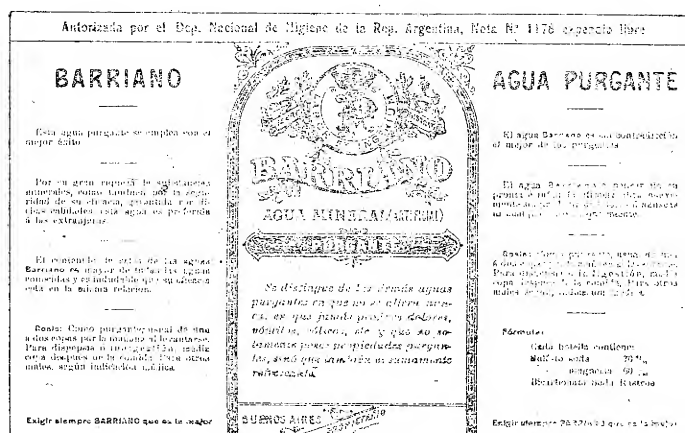 Autorizada por el Dep. Nacional de Higiene de la Rep. Argentina, Nota Nº 1176 expendio libre
BARRIANO
Esta agua purgante se emplea con el
mejor éxito
Por su gran riqueza de substancias
minerales, como tambien por la segu-
ridad de su eficacia, garantida por di-
chas calidades esta agua es preferida
á las extranjeras.
El contenido de sales de las aguas
Barriano es mayor de todas las aguas
conocidas y es indudable que su eficacia
está en la misma relacion.
Dosis: Como purgante usual de una
a dos copas por la mañana al levantarse.
Para dispepsia ó indigestión, media
copa despues de la comida. Para otros
males, según indicación médica.
Exigir siempre BARRIANO que es la mejor
BARRIANO
AGUA MINERAL
PURGANTE
Se distingue de las demás aguas
purgantes en que no se altera nun-
ca, es que jamás produce dolores,
vómitos, cólicos, etc. y que no so-
lamente posee propiedades purgan-
tes, sinó que también es sumamente
refrescante
BUENOS AIRES
AGUA PURGANTE
El agua Barriano es
el mejor de los purgantes
El agua Barriano á pesar de su
Dosis: Como purgante usual, de una
Para dispepsia ó indigestión, media
copa despues de la comida. Para otros
males
Fórmula:
Cada botella contiene:
Sulf. to soda 20 %
magnesia 60 %
Bicarbonato soda Rastros
Exigir siempre BARRIANO que es la mejor